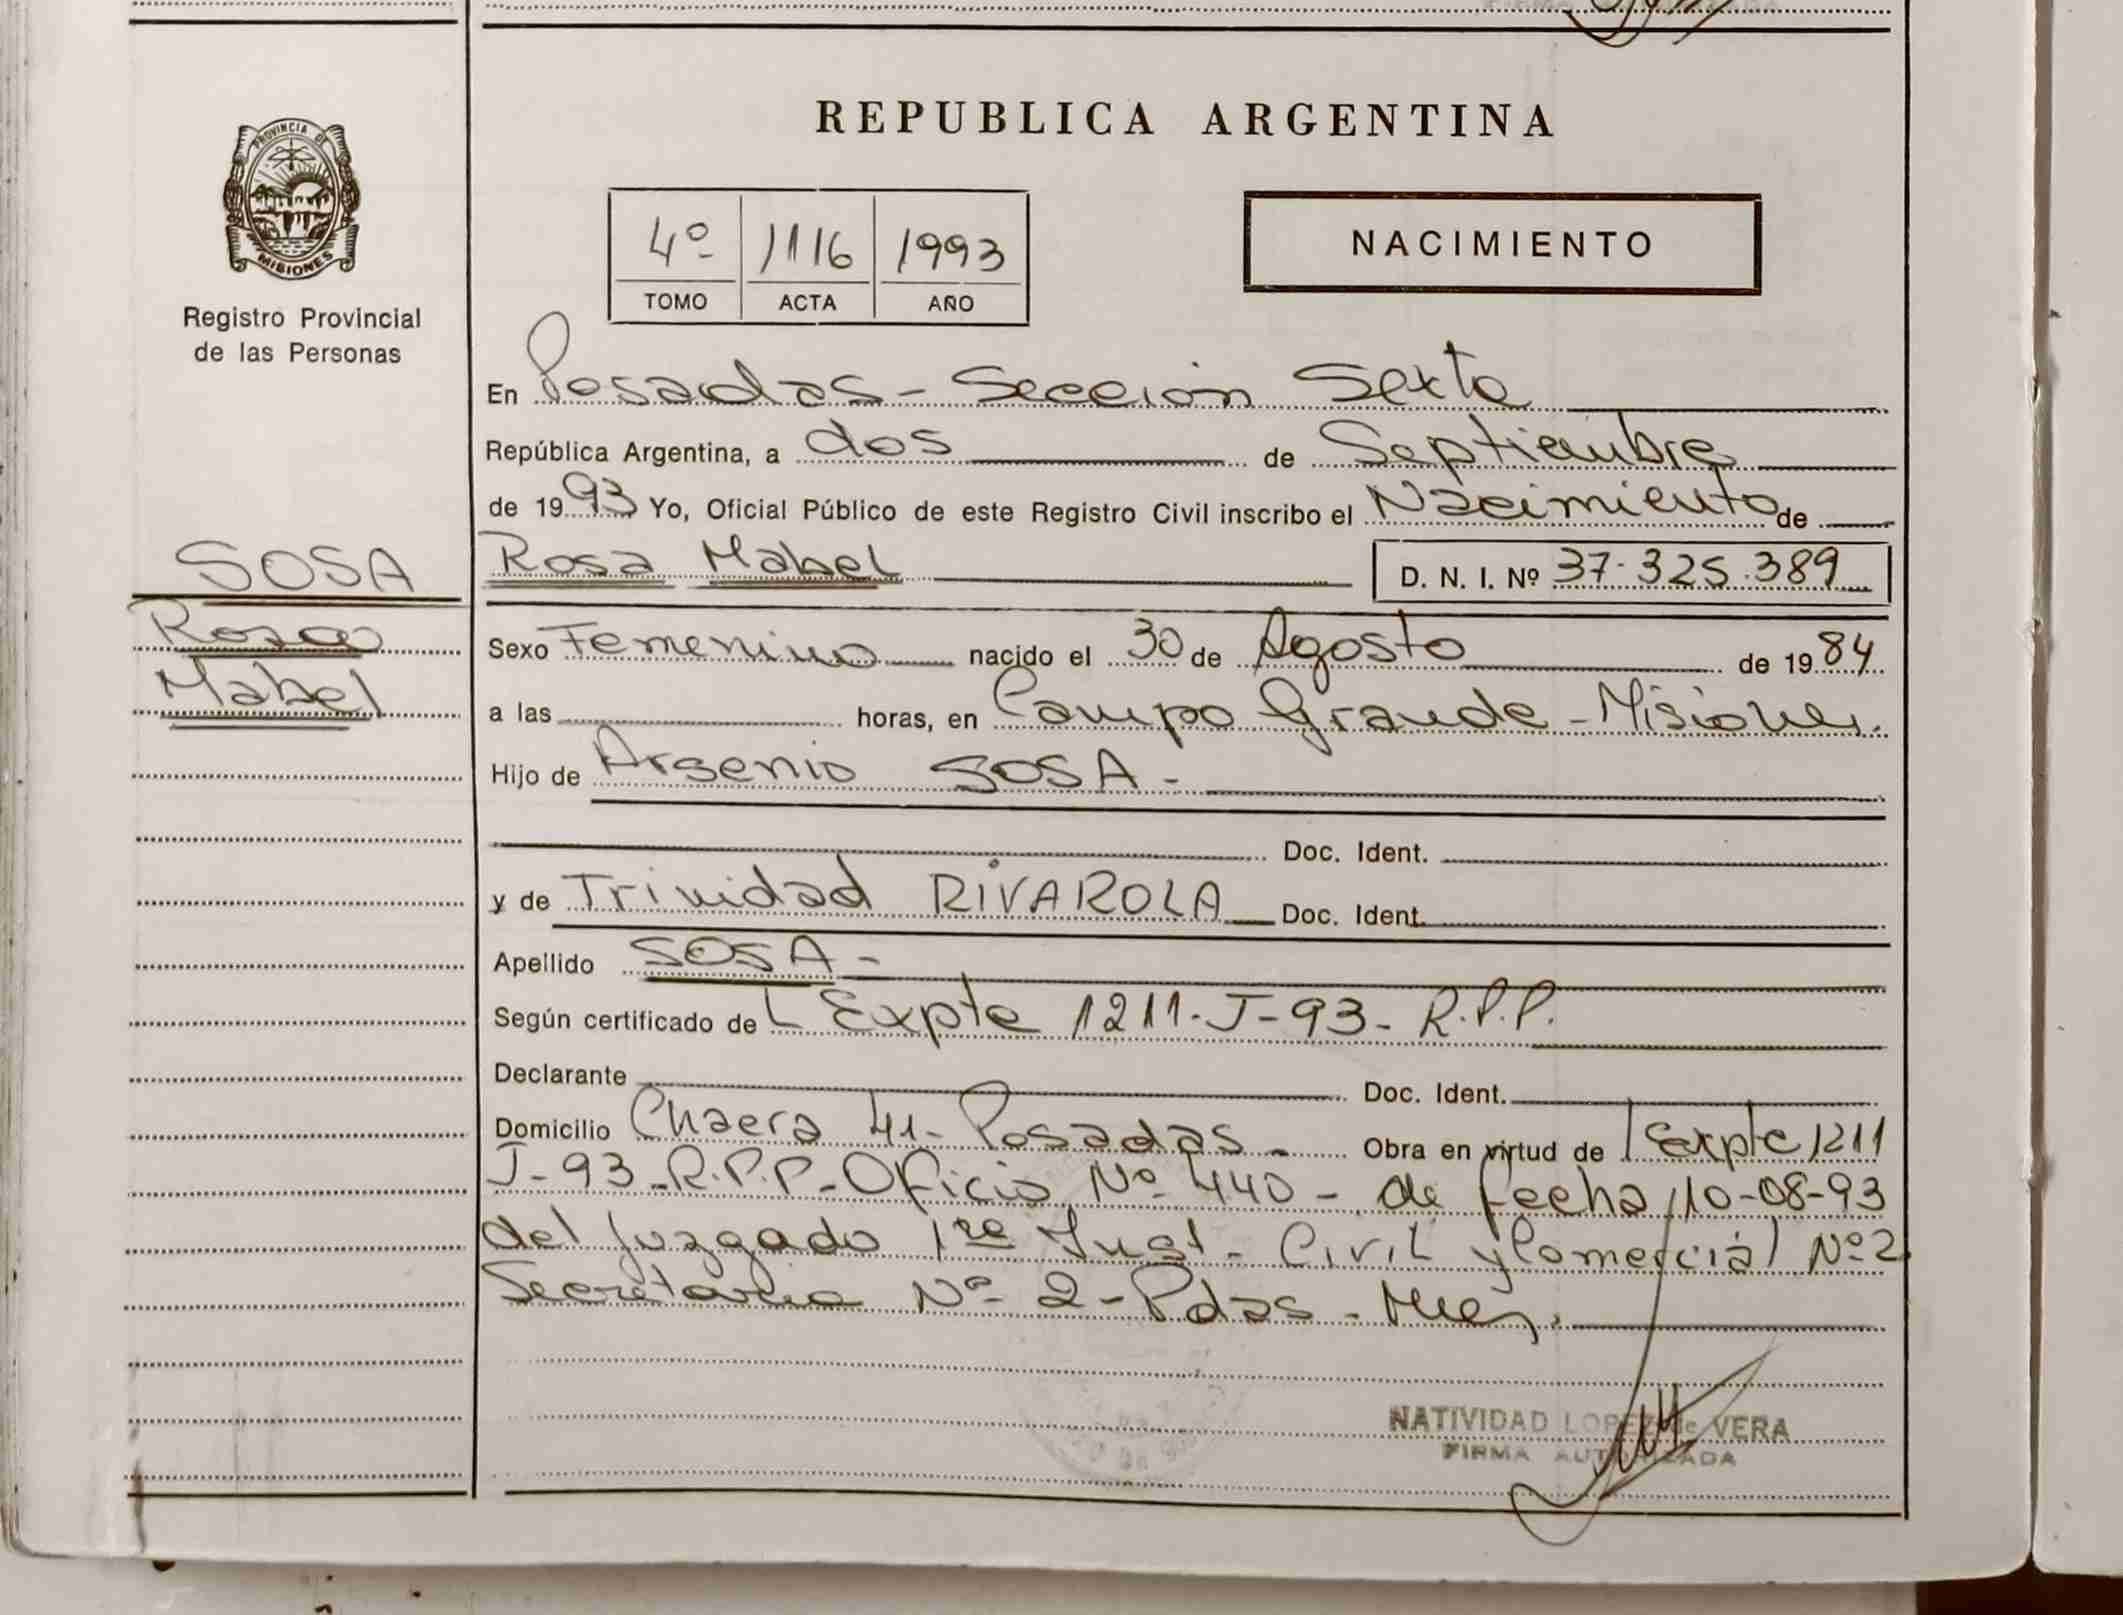 REPUBLICA ARGENTINA
PROVINCIA DE
MISIONES
Registro Provincial
de las Personas
4º 1116 1993
TOMO ACTA AÑO
NACIMIENTO
En Posadas - Sección Sexta
República Argentina, a dos de Septiembre
de 1993 Yo, Oficial Público de este Registro Civil inscribo el Nacimiento de
SOSA
Rosa
Mabel
Rosa Mabel D. N. I. Nº 37.325.389
Sexo Femenino nacido el 30 de Agosto de 1984
a las horas, en Campo Grande - Misiones.
Hijo de Arsenio SOSA -
Doc. Ident.
y de Trinidad RIVAROLA Doc. Ident.
Apellido SOSA -
Según certificado de Expte 1211-J-93- R.P.P.
Declarante Doc. Ident.
Domicilio Chacra 41- Posadas - Obra en virtud de Expte 1211
J-93-R.P.P-Oficio Nº 440 - de fecha 10-08-93
del Juzgado 1re Inst. Civil y Comercial Nº 2
Secretaria Nº 2 - Pdas - Mnes.
NATIVIDAD LOPEZ de VERA
FIRMA AUTORIZADA